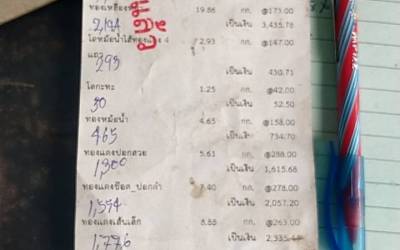 ทองเหลืองห 19.86 กก. @173.00
2,184 เป็นเงิน 3,435.78
โลหม้อน้ำไส้ทองแดง 4 2.93 กก. @147.00
แถ
293 เป็นเงิน 430.71
โลกะทะ 1.25 กก. @42.00
50 เป็นเงิน 52.50
ทองหม้อน้ำ 4.65 กก. @158.00
465 เป็นเงิน 734.70
ทองแดงปอกสวย 5.61 กก. @288.00
เป็นเงิน 1,615.68
ทองแดงช๊อต_ปอกดำ 7.40 กก. @278.00
1,554 เป็นเงิน 2,057.20
ทองแดงเส้นเล็ก 8.88 กก. @263.00
1,776 เป็นเงิน 2,335.